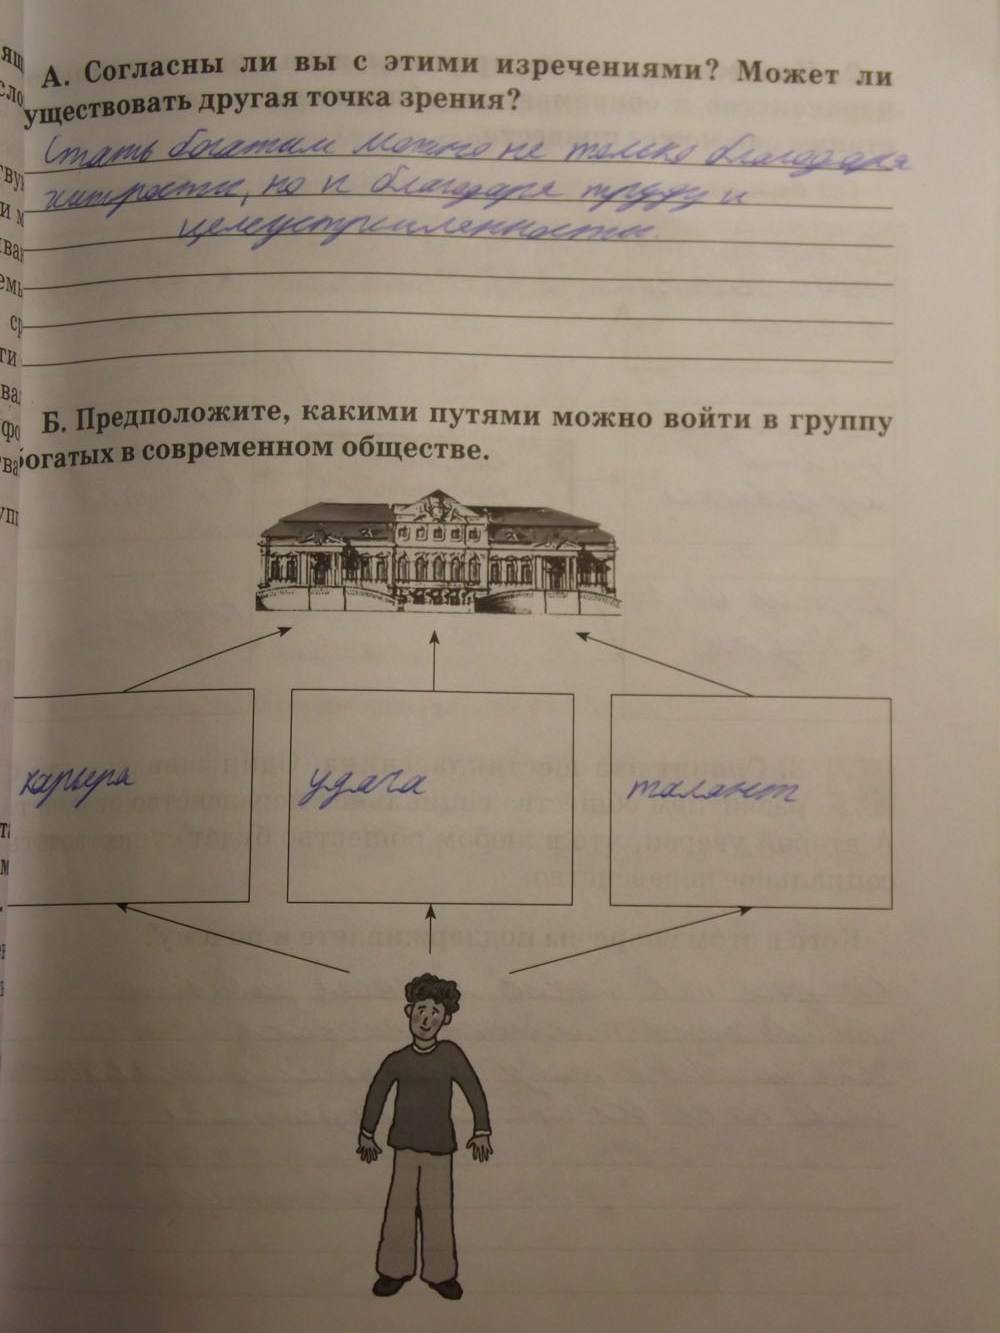 А. Согласны ли вы с этими изречениями? Может ли
уществовать другая точка зрения?
Стать богатым можно не только благодаря
хитрости, но и благодаря труду и
целеустремленности.
Б. Предположите, какими путями можно войти в группу
богатых в современном обществе.
карьера
удача
талант